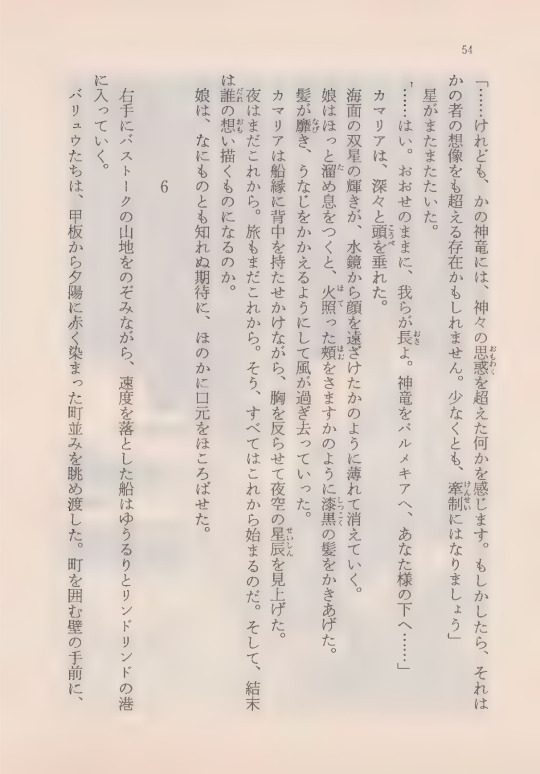 54
「……けれども、かの神竜には、神々の思惑を超えた何かを感じます。もしかしたら、それは
かの者の想像をも超える存在かもしれません。少なくとも、牽制にはなりましょう」
星がまたまたたいた。
「……はい。おおせのままに、我らが長よ。神竜をパルメキアへ、あなた様の下へ……」
カマリアは、深々と頭を垂れた。
海面の双星の輝きが、水鏡から顔を遠ざけたかのように薄れて消えていく。
娘はほっと溜め息をつくと、火照った頬をさますかのように漆黒の髪をかきあげた。
髪が靡き、うなじをかかえるようにして風が過ぎ去っていった。
カマリアは船縁に背中を持たせかけながら、胸を反らせて夜空の星辰を見上げた。
夜はまだこれから。旅もまだこれから。そう、すべてはこれから始まるのだ。そして、結末
は誰の想い描くものになるのか。
娘は、なにものとも知れぬ期待に、ほのかに口元をほころばせた。
6
右手にバストークの山地をのぞみながら、速度を落とした船はゆうるりとリンドリンドの港
に入っていく。
バリュウたちは、甲板から夕陽に赤く染まった町並みを眺め渡した。町を囲む壁の手前に、